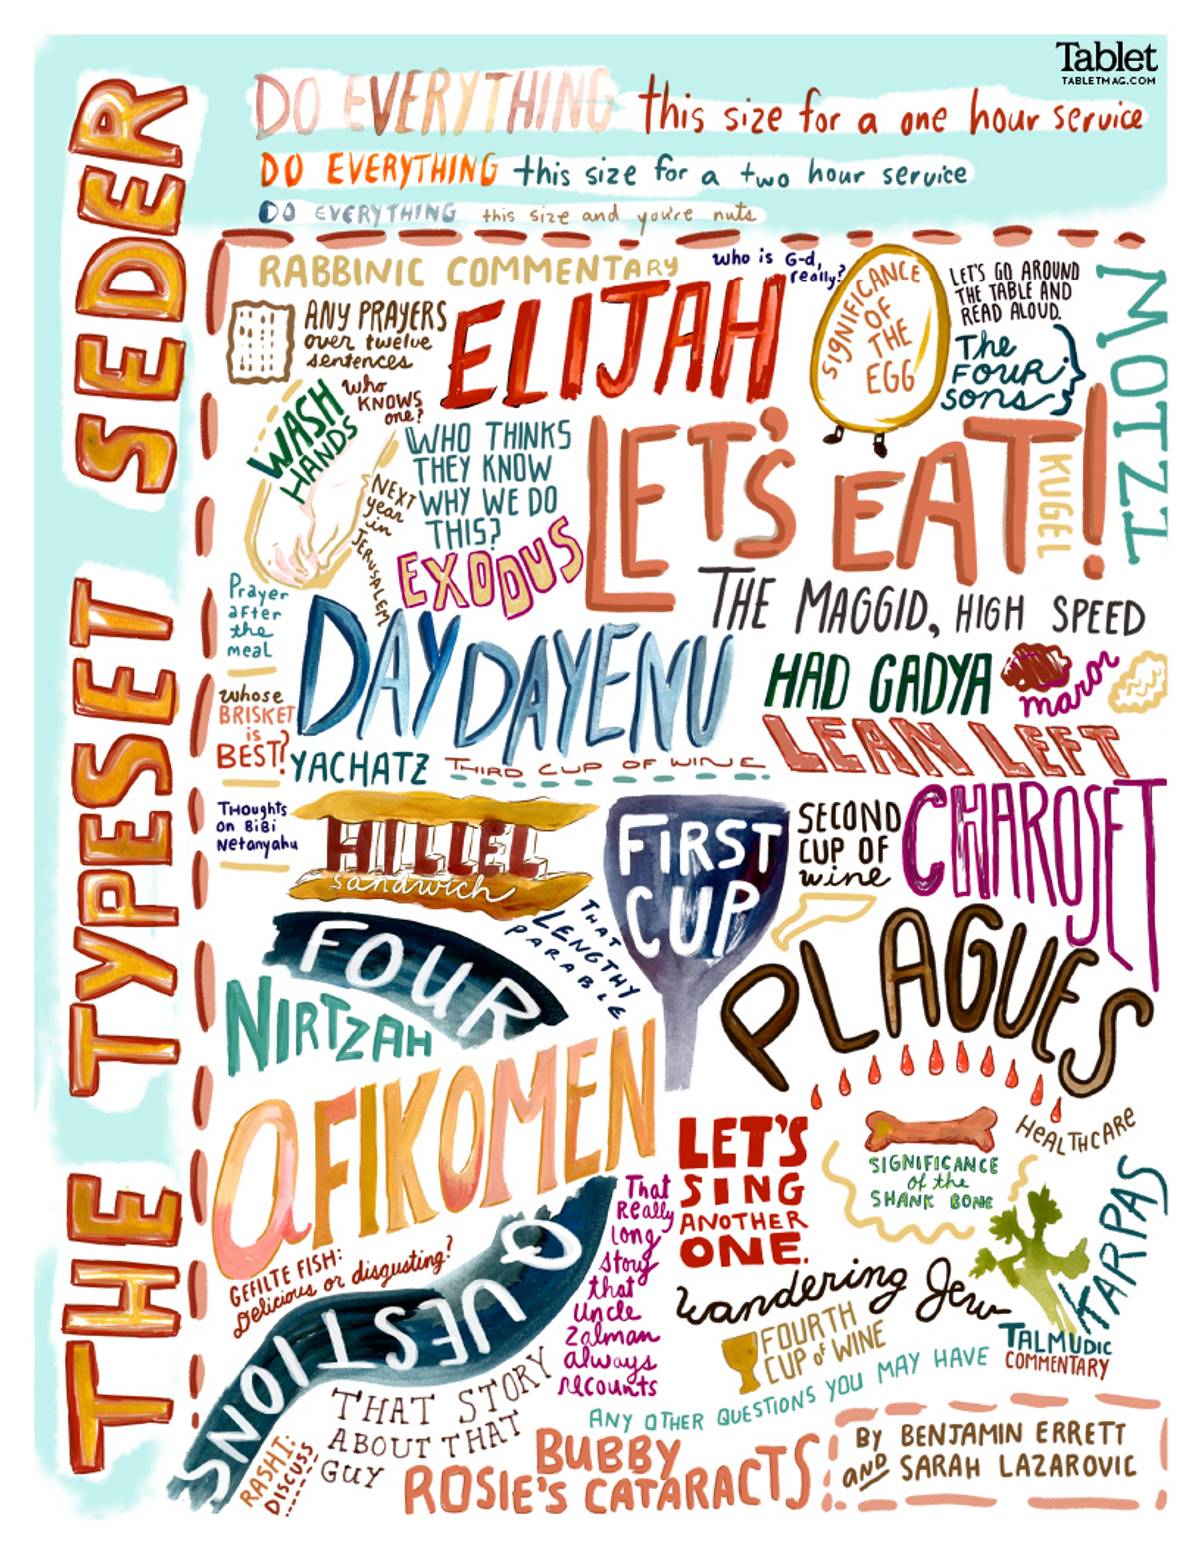 Tablet
TABLETMAG.COM
THE TYPESET SEDER
DO EVERYTHING this size for a one hour service
DO EVERYTHING this size for a two hour service
DO EVERYTHING this size and you're nuts
RABBINIC COMMENTARY
who is G-d,
really?
SIGNIFICANCE
OF
THE
EGG
LET'S GO AROUND
THE TABLE AND
READ ALOUD.
MOTZI
ANY PRAYERS
over twelve
sentences
ELIJAH
The
FOUR
sons
WASH
HANDS
who
KNOWS
one?
WHO THINKS
THEY KNOW
WHY WE DO
THIS?
LET'S EAT!
KUGEL
NEXT
year
in
JERUSALEM
EXODUS
THE MAGGID, HIGH SPEED
Prayer
after
the
meal
DAY DAYENU
HAD GADYA
maror
whose
BRISKET
is
BEST?
LEAN LEFT
YACHATZ
THIRD CUP OF WINE
Thoughts
on BiBi
Netanyahu
HILLEL
sandwich
FIRST
CUP
SECOND
CUP OF
wine
CHAROSET
THAT
LENGTHY
PARABLE
FOUR
PLAGUES
NIRTZAH
AFIKOMEN
LET'S
SING
ANOTHER
ONE.
HEALTHCARE
SIGNIFICANCE
of the
SHANK BONE
KARPAS
That
Really
long
story
that
Uncle
Zalman
always
recounts
GEFILTE FISH:
Delicious or disgusting?
QUESTIONS
wandering Jew
FOURTH
CUP of WINE
TALMUDIC
COMMENTARY
THAT STORY
ABOUT THAT
GUY
ANY OTHER QUESTIONS YOU MAY HAVE
RASHI:
DISCUSS
BUBBY
ROSIE'S CATARACTS
BY BENJAMIN ERRETT
AND SARAH LAZAROVIC